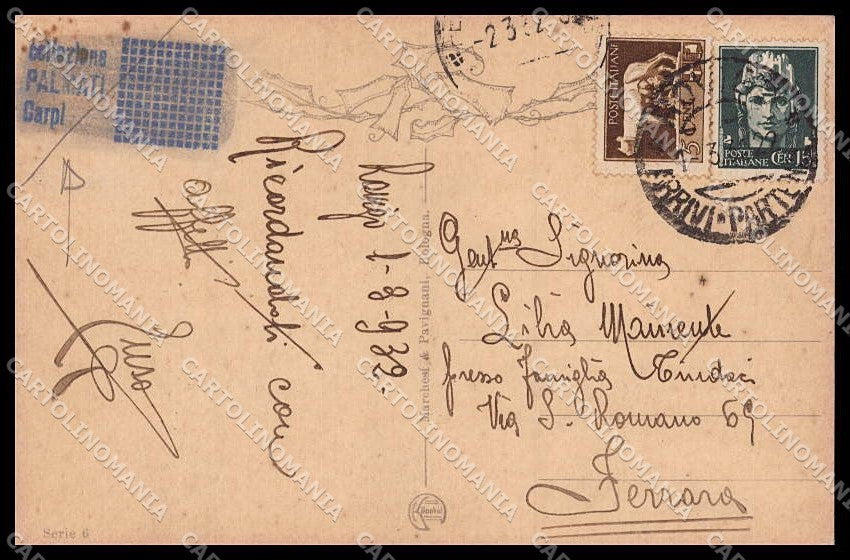 Collezione
PALMIERI
Carpi
-2.3.32
POSTE ITALIANE
CENT. 5
POSTE ITALIANE
CENT. 15
ARRIVI-PARTENZE
1-3-932.
Ricordandoti con
affetto
Marchesi & Pavignani, Bologna.
Gent.ma Signorina
presso Famiglia
Via S. Romano 69
Ferrara
Serie 6
CARTOLINOMANIA